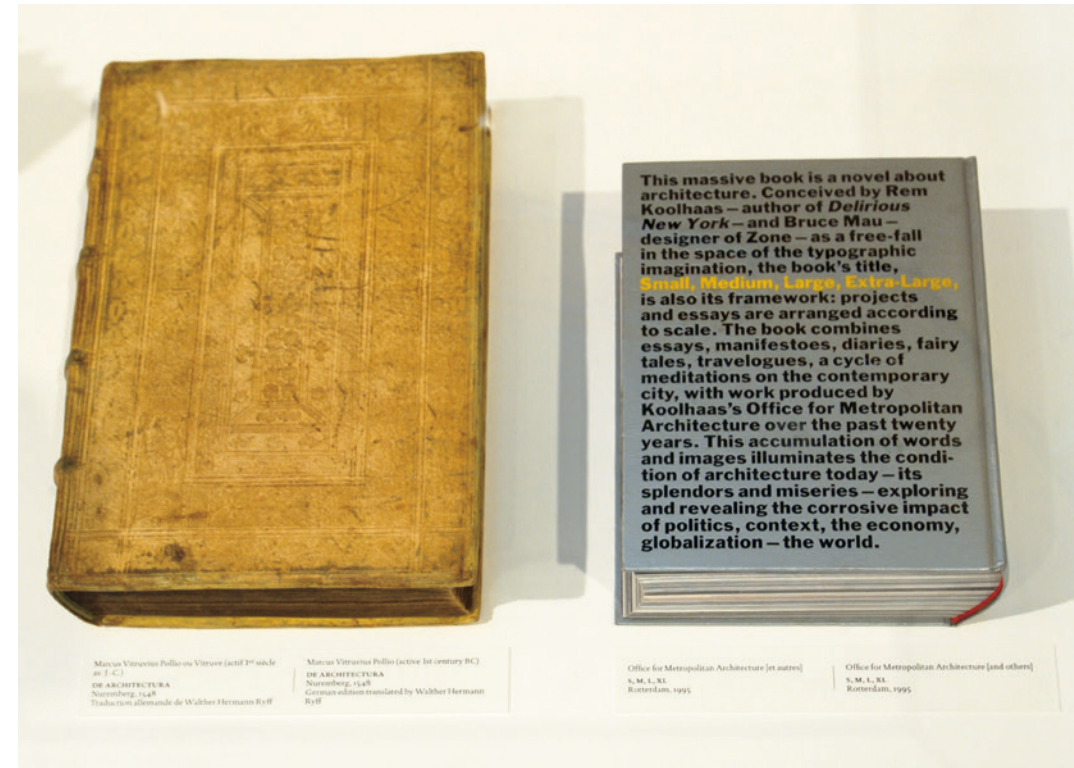 This massive book is a novel about
architecture. Conceived by Rem
Koolhaas – author of Delirious
New York – and Bruce Mau –
designer of Zone – as a free-fall
in the space of the typographic
imagination, the book's title,
Small, Medium, Large, Extra-Large,
is also its framework: projects
and essays are arranged according
to scale. The book combines
essays, manifestoes, diaries, fairy
tales, travelogues, a cycle of
meditations on the contemporary
city, with work produced by
Koolhaas's Office for Metropolitan
Architecture over the past twenty
years. This accumulation of words
and images illuminates the condi-
tion of architecture today – its
splendors and miseries – exploring
and revealing the corrosive impact
of politics, context, the economy,
globalization – the world.
Marcus Vitruvius Pollio ou Vitruve (actif Iᵉʳ siècle
av. J.-C.)
DE ARCHITECTURA
Nuremberg, 1548
Traduction allemande de Walther Hermann Ryff
Marcus Vitruvius Pollio (active 1st century BC)
DE ARCHITECTURA
Nuremberg, 1548
German edition translated by Walther Hermann
Ryff
Office for Metropolitan Architecture [et autres]
S, M, L, XL
Rotterdam, 1995
Office for Metropolitan Architecture [and others]
S, M, L, XL
Rotterdam, 1995